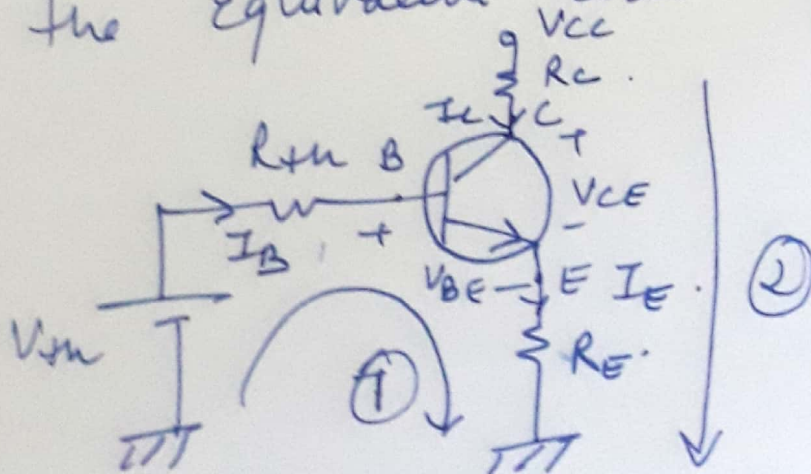 the Equivalent
VCC
RC .
IC C
+
Rth B
VCE
IB + -
VBE E IE .
Vth
RE .
1
2